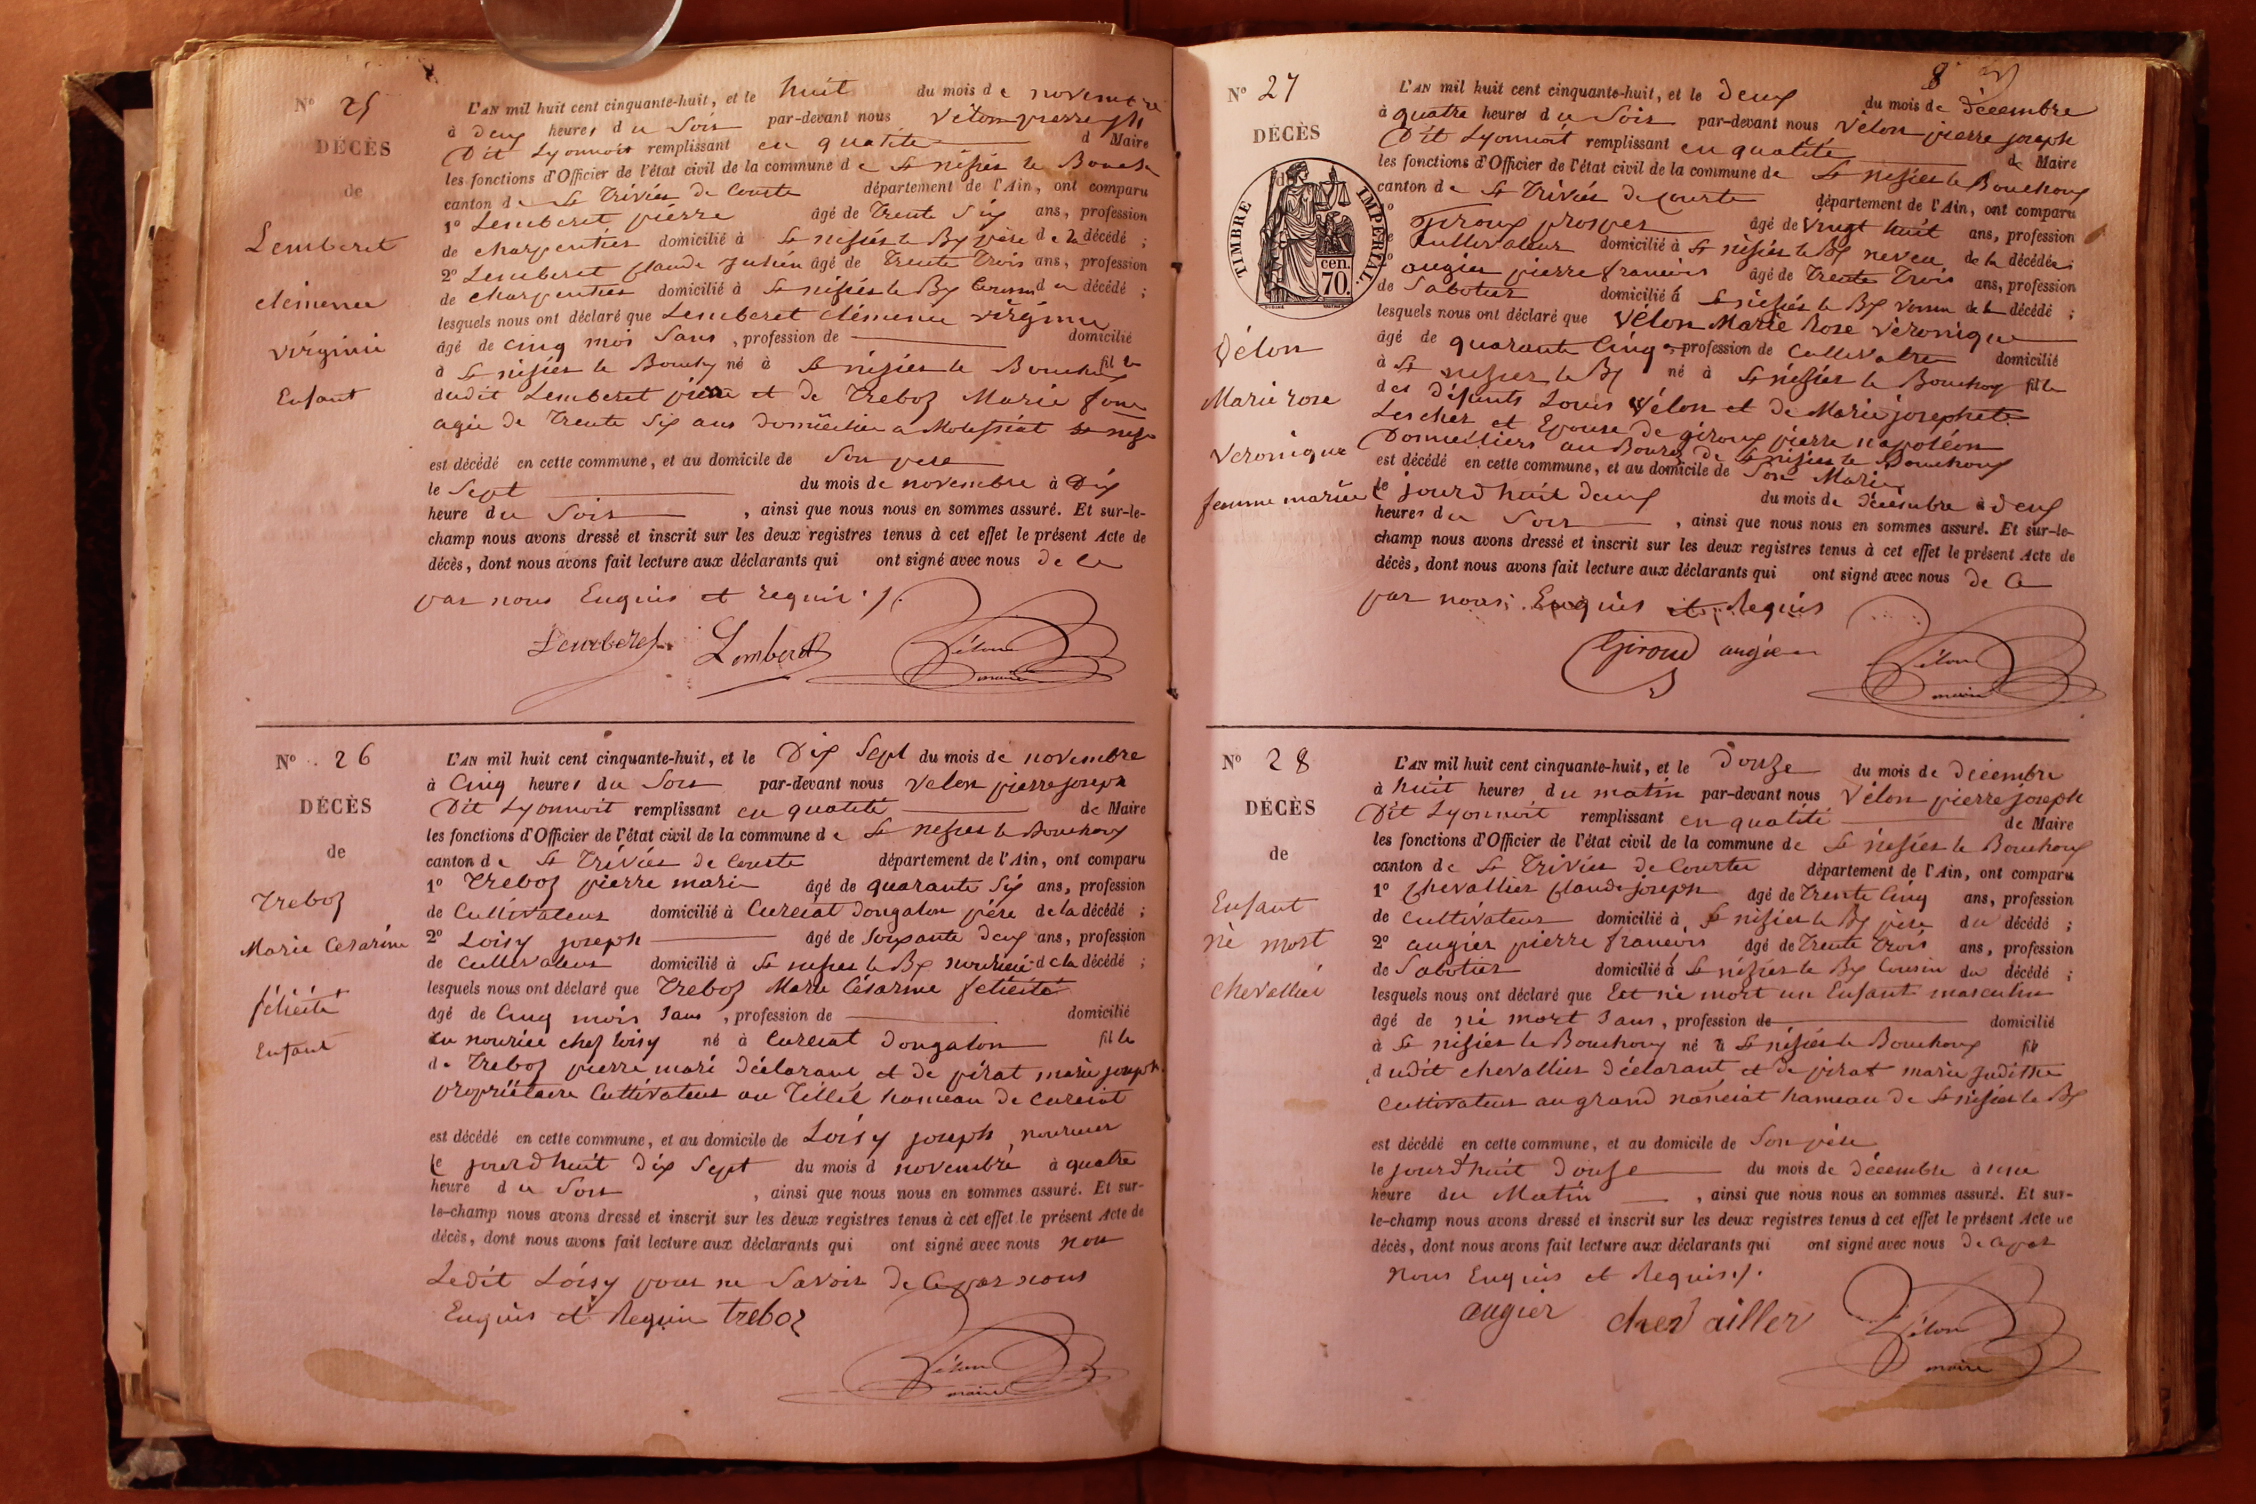 Nº 25
DÉCÈS
de
Lemberet
clémence
virginie
Enfant
L'AN mil huit cent cinquante-huit, et le huit du mois de novembre
à deux heures du Soir par-devant nous Vélon pierre jh
Dit Lyonnoit remplissant en qualité d Maire
les fonctions d'Officier de l'état civil de la commune de St nisiés le Bouch
canton de St Triviés de Courte département de l'Ain, ont comparu
1º Lemberet pierre âgé de Trente Six ans, profession
de charpentiés domicilié à St nisiés le Bx père de la décédé ;
2º Lemberet claude Julien âgé de Trente Trois ans, profession
de charpentiés domicilié à St nisiés le Bx Cousin d u décédé ;
lesquels nous ont déclaré que Lemberet clémence virginie
âgé de cinq moi Sans , profession de domicilié
à St nisiés le Bouchy né à St nisiés le Bouchoux fille
dudit Lemberet pierre et de Treboz Marie
agée de Trente Six ans domiciliee a Molessiat
est décédé en cette commune, et au domicile de Son père
le Sept du mois de novembre à Dix
heure du Soir , ainsi que nous nous en sommes assuré. Et sur-le-
champ nous avons dressé et inscrit sur les deux registres tenus à cet effet le présent Acte de
décès, dont nous avons fait lecture aux déclarants qui ont signé avec nous de ce
par nous Enquis et requis ./.
Lemberet Lemberet Vélon
maire
Nº 26
DÉCÈS
de
Treboz
Marie Cesarine
félicité
Enfant
L'AN mil huit cent cinquante-huit, et le Dix Sept du mois de novembre
à Cinq heures du Soir par-devant nous Velon pierre joseph
Dit Lyonnoit remplissant en qualité de Maire
les fonctions d'Officier de l'état civil de la commune de St nisies le Bouchoux
canton de St Triviés de Courte département de l'Ain, ont comparu
1º Treboz pierre marie âgé de quarante Six ans, profession
de Cultivateur domicilié à Curciat dongalon père de la décédé ;
2º Loisy joseph âgé de Soixante deux ans, profession
de Cultivateur domicilié à St nisies le Bx nouricié de la décédé ;
lesquels nous ont déclaré que Treboz Marie Césarine félicité
âgé de Cinq mois Sans , profession de domicilié
en nourice chez loisy né à Curciat dongalon fille
de Treboz pierre marie déclarant et de pirat marie joseph
propriétaire Cultivateur au Tillié hameau de curciat
est décédé en cette commune, et au domicile de Loisy joseph, nouricier
le jourdhuit dix Sept du mois d novembre à quatre
heure du Soir , ainsi que nous nous en sommes assuré. Et sur-
le-champ nous avons dressé et inscrit sur les deux registres tenus à cet effet le présent Acte de
décès, dont nous avons fait lecture aux déclarants qui ont signé avec nous non
Ledit Loisy pour ne Savoir de ce par nous
Enquis et Requis treboz
Vélon
maire
Nº 27
DÉCÈS
de
TIMBRE IMPÉRIAL
70 cen.
Vélon
Marie rose
Veronique
femme mariée
L'AN mil huit cent cinquante-huit, et le deux du mois de décembre
à quatre heures du Soir par-devant nous Vélon pierre joseph
Dit Lyonnoit remplissant en qualité de Maire
les fonctions d'Officier de l'état civil de la commune de St nisiés le Bouchoux
canton de St Triviés de courte département de l'Ain, ont comparu
1º Giroux prosper âgé de vingt huit ans, profession
de Cultivateur domicilié à St nisiés le Bx neveu de la décédée ;
2º augier pierre francois âgé de Trente Trois ans, profession
de Sabotier domicilié à St nisiés le Bx voisin de la décédé ;
lesquels nous ont déclaré que Vélon Marie Rose Véronique
âgé de quarante Cinq ans profession de Cultivatre domicilié
à St nisies le Bx né à St nisiés le Bouchoux fille
des défunts Louis Vélon et de Marie josephete
Lescher et Epouse de giroux pierre napoléon
Domiciliers au Bourg de St nisies le Bouchoux
est décédé en cette commune, et au domicile de Son Marie
le jourdhuit deux du mois de décembre à deux
heures du Soir , ainsi que nous nous en sommes assuré. Et sur-le-
champ nous avons dressé et inscrit sur les deux registres tenus à cet effet le présent Acte de
décès, dont nous avons fait lecture aux déclarants qui ont signé avec nous de Ce
par nous Enquis et Requis
Giroud augier Vélon
maire
Nº 28
DÉCÈS
de
Enfant
né mort
chevallié
L'AN mil huit cent cinquante-huit, et le douze du mois de décembre
à huit heures du matin par-devant nous Vélon pierre joseph
Dit Lyonnoit remplissant en qualité de Maire
les fonctions d'Officier de l'état civil de la commune de St nisiés le Bouchoux
canton de St Triviés de Courte département de l'Ain, ont comparu
1º chevallier claude joseph âgé de Trente Cinq ans, profession
de cultivateur domicilié à St nisiés le Bx père du décédé ;
2º augier pierre francois âgé de Trente Trois ans, profession
de Sabotier domicilié à St nisiés le Bx Cousin du décédé ;
lesquels nous ont déclaré que Est né mort un Enfant masculin
âgé de né mort Sans, profession de domicilié
à St nisies le Bouchoux né à St nisiés le Bouchoux fils
dudit chevallier déclarant et de pirat marie judithe
Cultivateur au grand nanciat hameau de St nisiés le Bx
est décédé en cette commune, et au domicile de Son père
le jourdhuit douze du mois de décembre à une
heure du Matin , ainsi que nous nous en sommes assuré. Et sur-
le-champ nous avons dressé et inscrit sur les deux registres tenus à cet effet le présent Acte de
décès, dont nous avons fait lecture aux déclarants qui ont signé avec nous de ce par
nous Enquis et Requis ./.
augier chevailler Vélon
maire